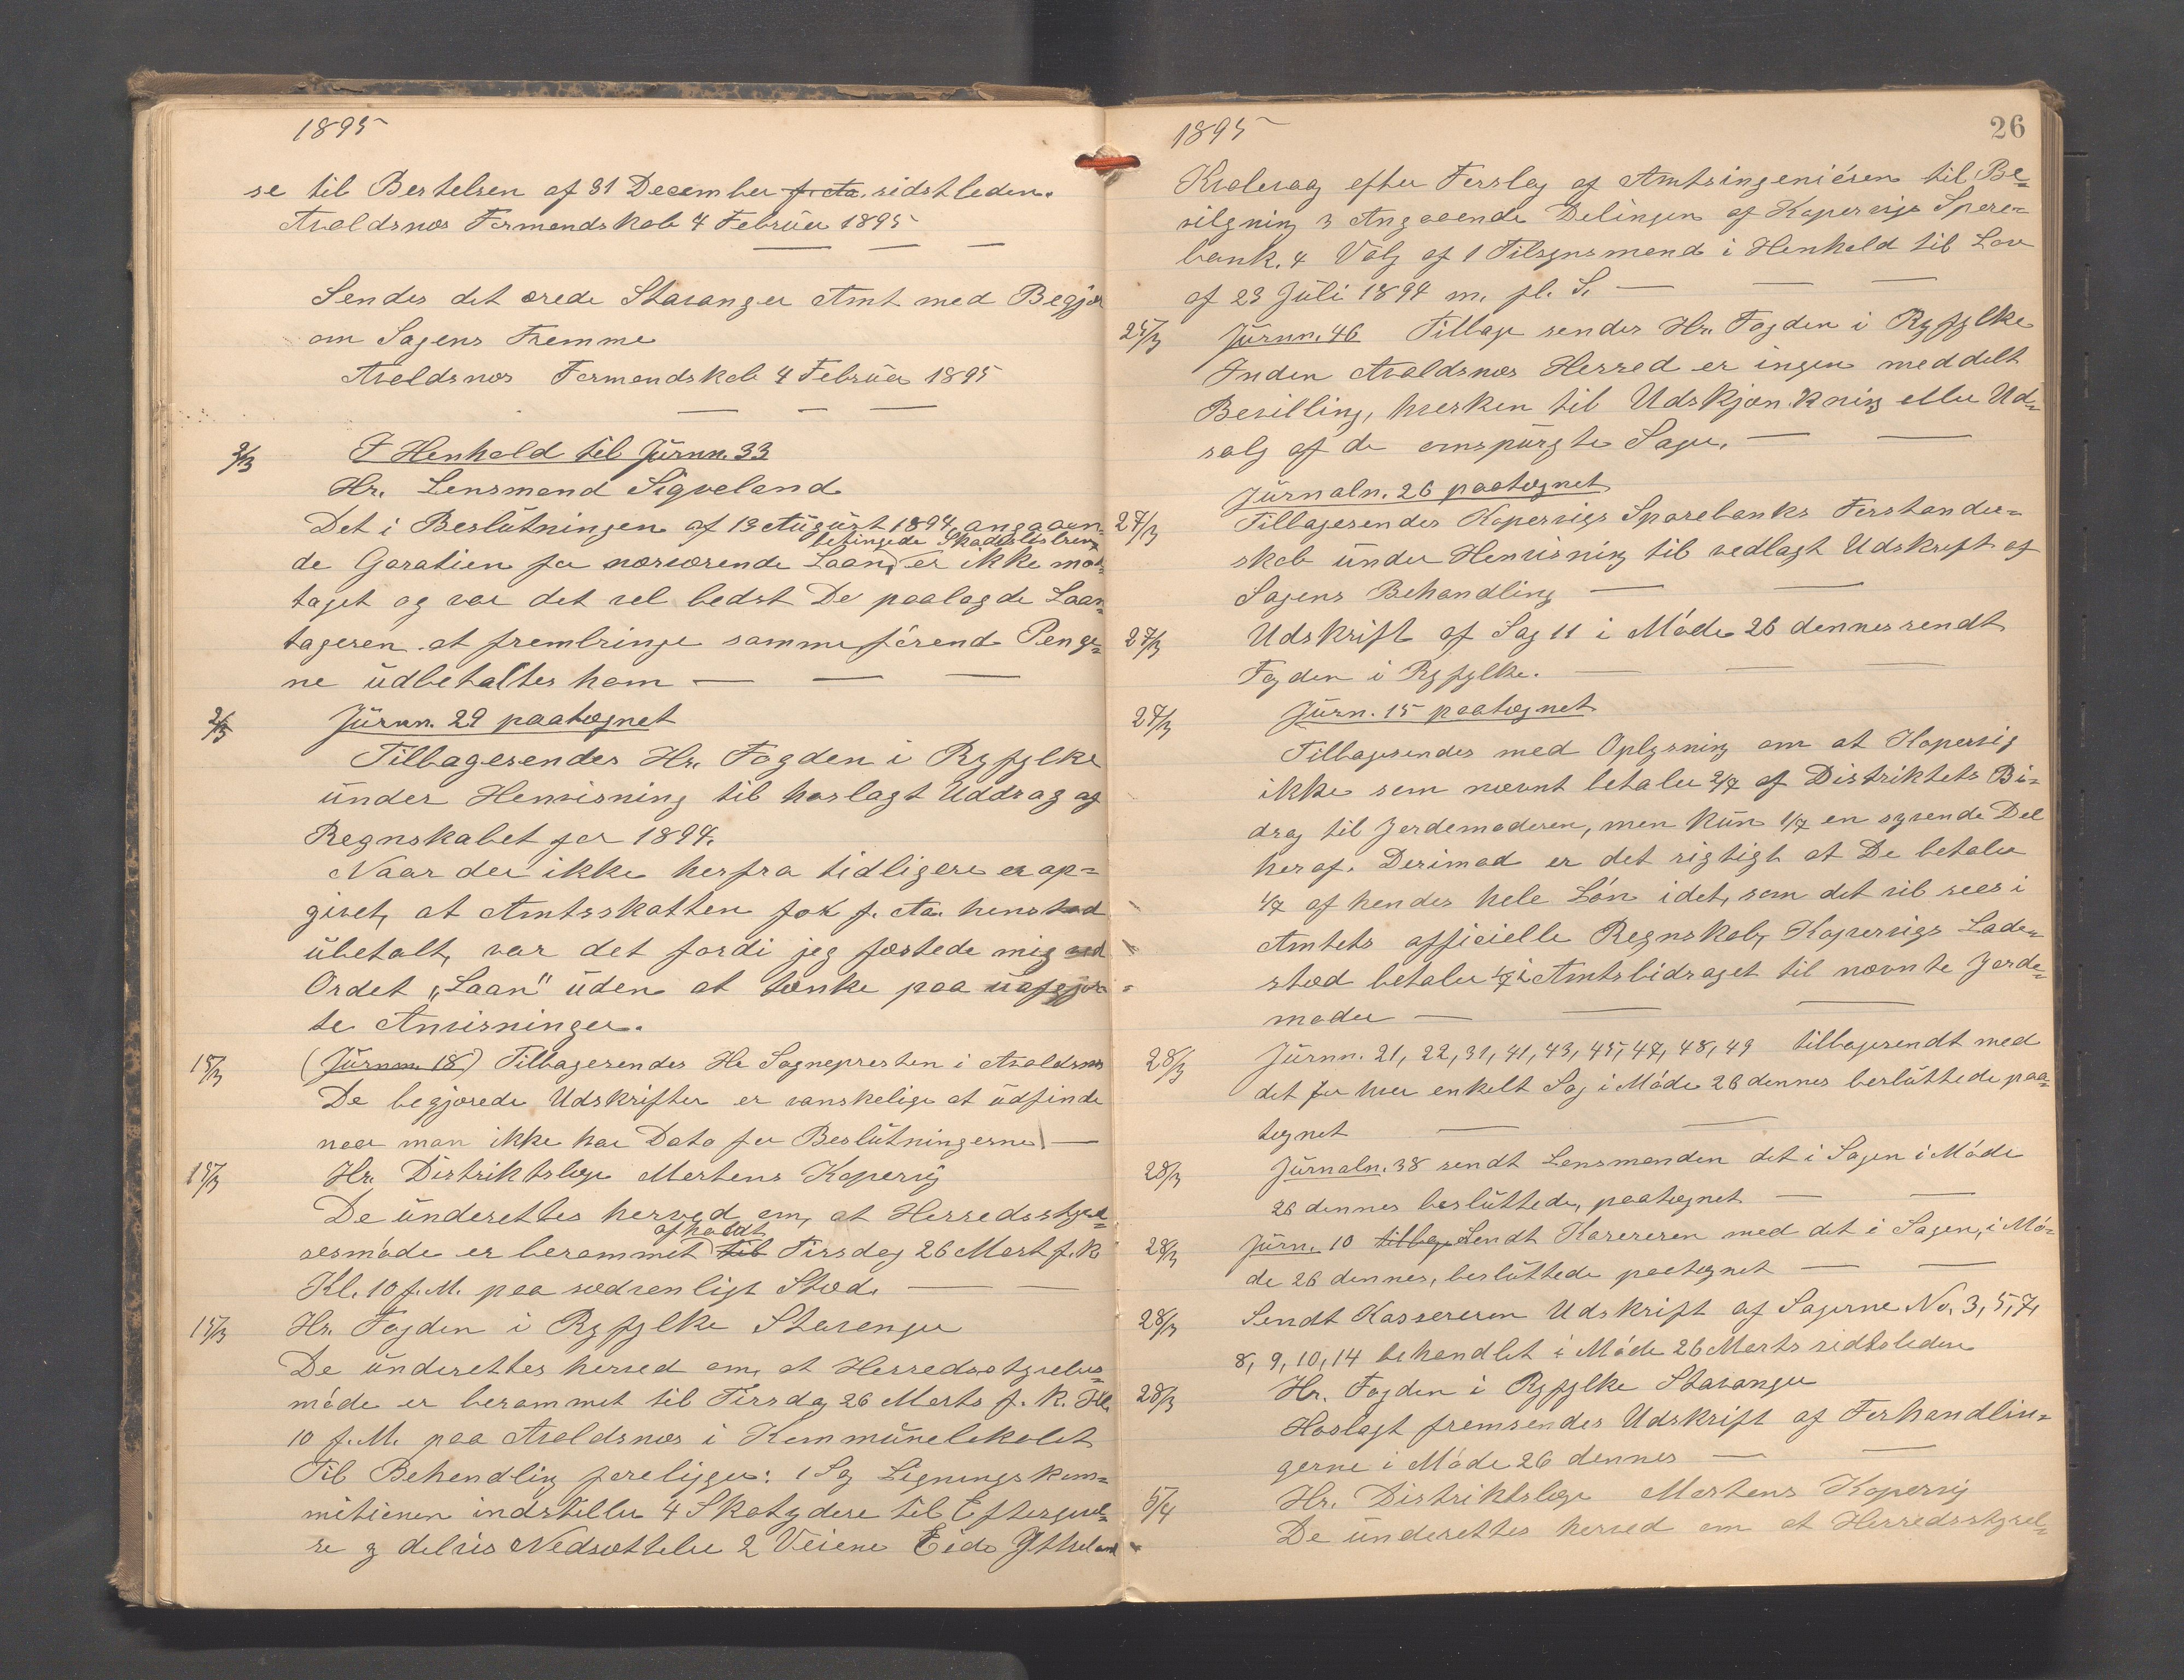 1895
se til Bestelsen af 31 December f. Aa. sidstleden.
Avaldsnæs Formandskab 4 Februar 1895
Sendes det ærede Stavanger Amt med Begjær
om Sagens Fremme
Avaldsnæs Formandskab 4 Februar 1895
2/3 I Henhold til Jurnn. 33
Hr. Lensmand Sigveland
Det i Beslutningen af 13 August 1894, angaaen-
betingede Skadeslosbrev
de Garatien for nærværende Laan, er ikke mod-
taget og var det vel bedst De paalagde Laan-
tageren at frembringe samme førend Penge-
ne udbetaltes ham
2/3 Jurnn. 29 paategnet
Tilbagesendes Hr. Fogden i Ryfylke
under Henvisning til hoslagt Uddrag af
Regnskabet for 1894.
Naar der ikke herfra tidligere er op-
givet, at Amtsskatten for f. Aa. henstod
ubetalt, var det fordi jeg fæstede mig ved
Ordet „Laan" uden at tænke paa uafgjor-
te Anvisninger.
15/3 (Jurnn. 18) Tilbagesendes Hr Sognepresten i Avaldsnæs
De begjærede Udskrifter er vanskelige at udfinde
naar man ikke har Dato for Beslutningerne
15/3 Hr. Distriktslæge Mertens Kopervig
De underettes herved om, at Herredsstyrel-
afholdt
sesmøde er berammet til Tirsdag 26 Mart f. k.
Kl. 10 f. M. paa sædvanligt Sted.
15/3 Hr. Fogden i Ryfylke Stavanger
De underettes herved om, at Herredsstyrelses-
møde er berammet til Tirsdag 26 Marts f. k. Kl.
10 f. M. paa Avaldsnæs i Kommunelokalet
Til Behandling foreligger: 1 Sag Ligningskom-
mitionen indstiller 4 Skatydere til Eftergivel-
se og delvis Nedsættelse 2 Veiene Eide Ytreland
1895
26
Kvalevag efter Forslag af Amtsingeniøren til Be-
vilgning 3 Angaaende Delingen af Kopervigs Spare-
bank. 4 Valg af 1 Tilsynsmand i Henhold til Lov
af 23 Juli 1894 m. fl. S.
25/3 Jurnn. 46 Tilbage sendes Hr. Fogden i Ryfylke
Inden Avaldsnæs Herred er ingen meddelt
Bevilling, hverken til Udskjænkning eller Ud-
salg af de omspurgte Sager.
Jurnaln. 26 paategnet
27/3 Tilbagesendes Kopervigs Sparebanks Forstander-
skab under Henvisning til vedlagt Udskrift af
Sagens Behandling
27/3 Udskrift af Sag 11 i Møde 26 dennes sendt
Fogden i Ryfylke.
27/3 Jurn. 15 paategnet
Tilbagesendes med Oplysning om at Kopervig
ikke som nævnt betaler 2/7 af Distriktets Bi-
drag til Jordemoderen, men kun 1/7 en syvende Del
heraf. Derimod er det rigtigt at De betaler
1/7 af hendes hele Løn idet, som det vil sees i
Amtets officielle Regnskab, Kopervigs Lade-
sted betaler 1/7 i Amtsbidraget til nævnte Jorde-
moder
28/3 Jurnn. 21, 22, 31, 41, 43, 45, 47, 48, 49 tilbagesendt med
det for hver enkelt Sag i Møde 26 dennes besluttede paa-
tegnet
28/3 Jurnaln. 38 sendt Lensmanden det i Sagen i Møde
26 dennes besluttede, paategnet
28/3 Jurn. 10 tilbagesendt Kasereren med det i Sagen, i Mø-
de 26 dennes, besluttede paategnet
28/3 Sendt Kassereren Udskrift af Sagerne No. 3, 5, 7,
8, 9, 10, 14 behandlet i Møde 26 Marts sidstleden
28/3 Hr. Fogden i Ryfylke Stavanger
Hoslagt fremsendes Udskrift af Forhandlin-
gerne i Møde 26 dennes
5/4 Hr. Distriktslæge Mertens Kopervig
De underettes herved om at Herredsstyrel-